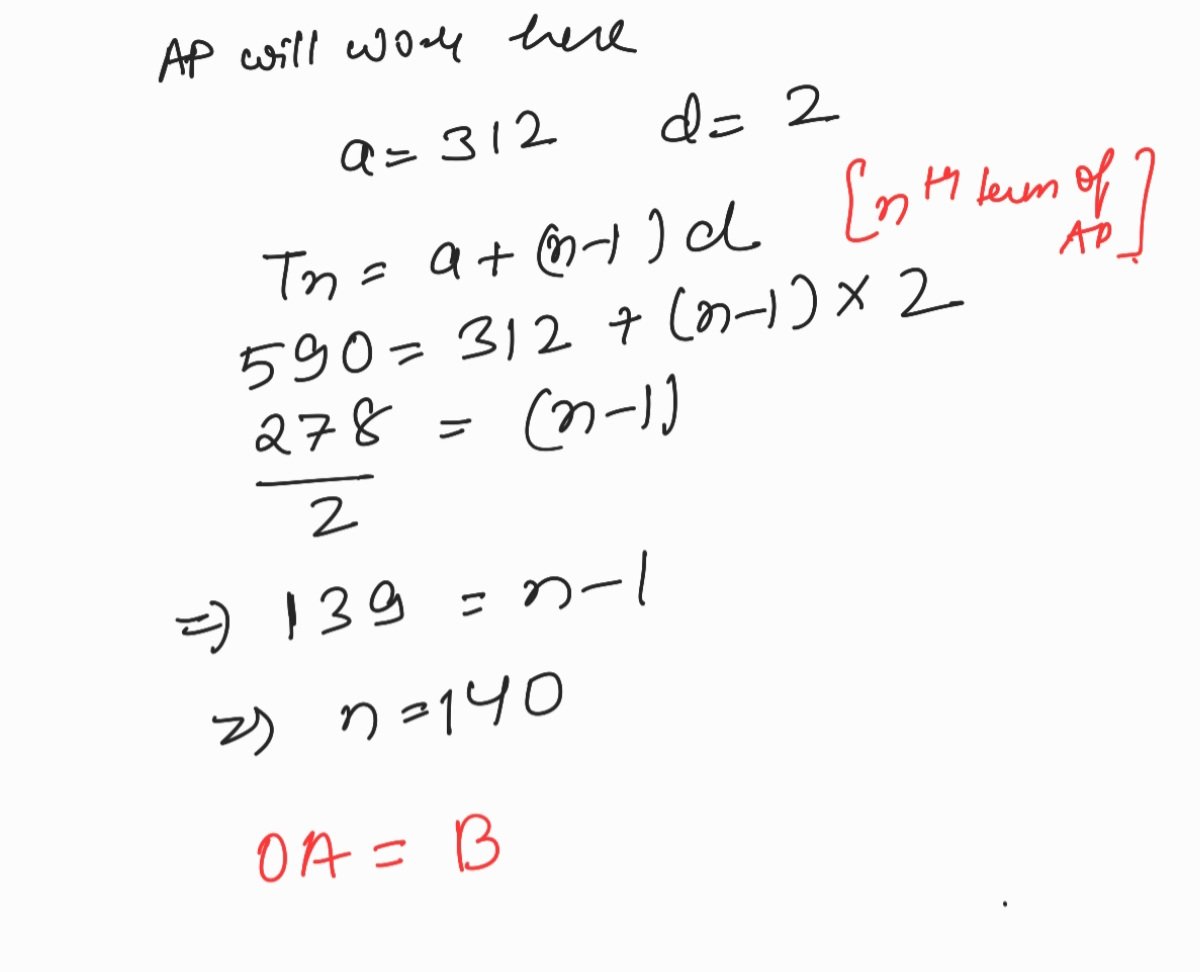 AP will work here
a = 312 d = 2
Tn = a + (n-1)d [nth term of AP]
590 = 312 + (n-1) × 2
278/2 = (n-1)
⇒ 139 = n-1
⇒ n = 140
OA = B